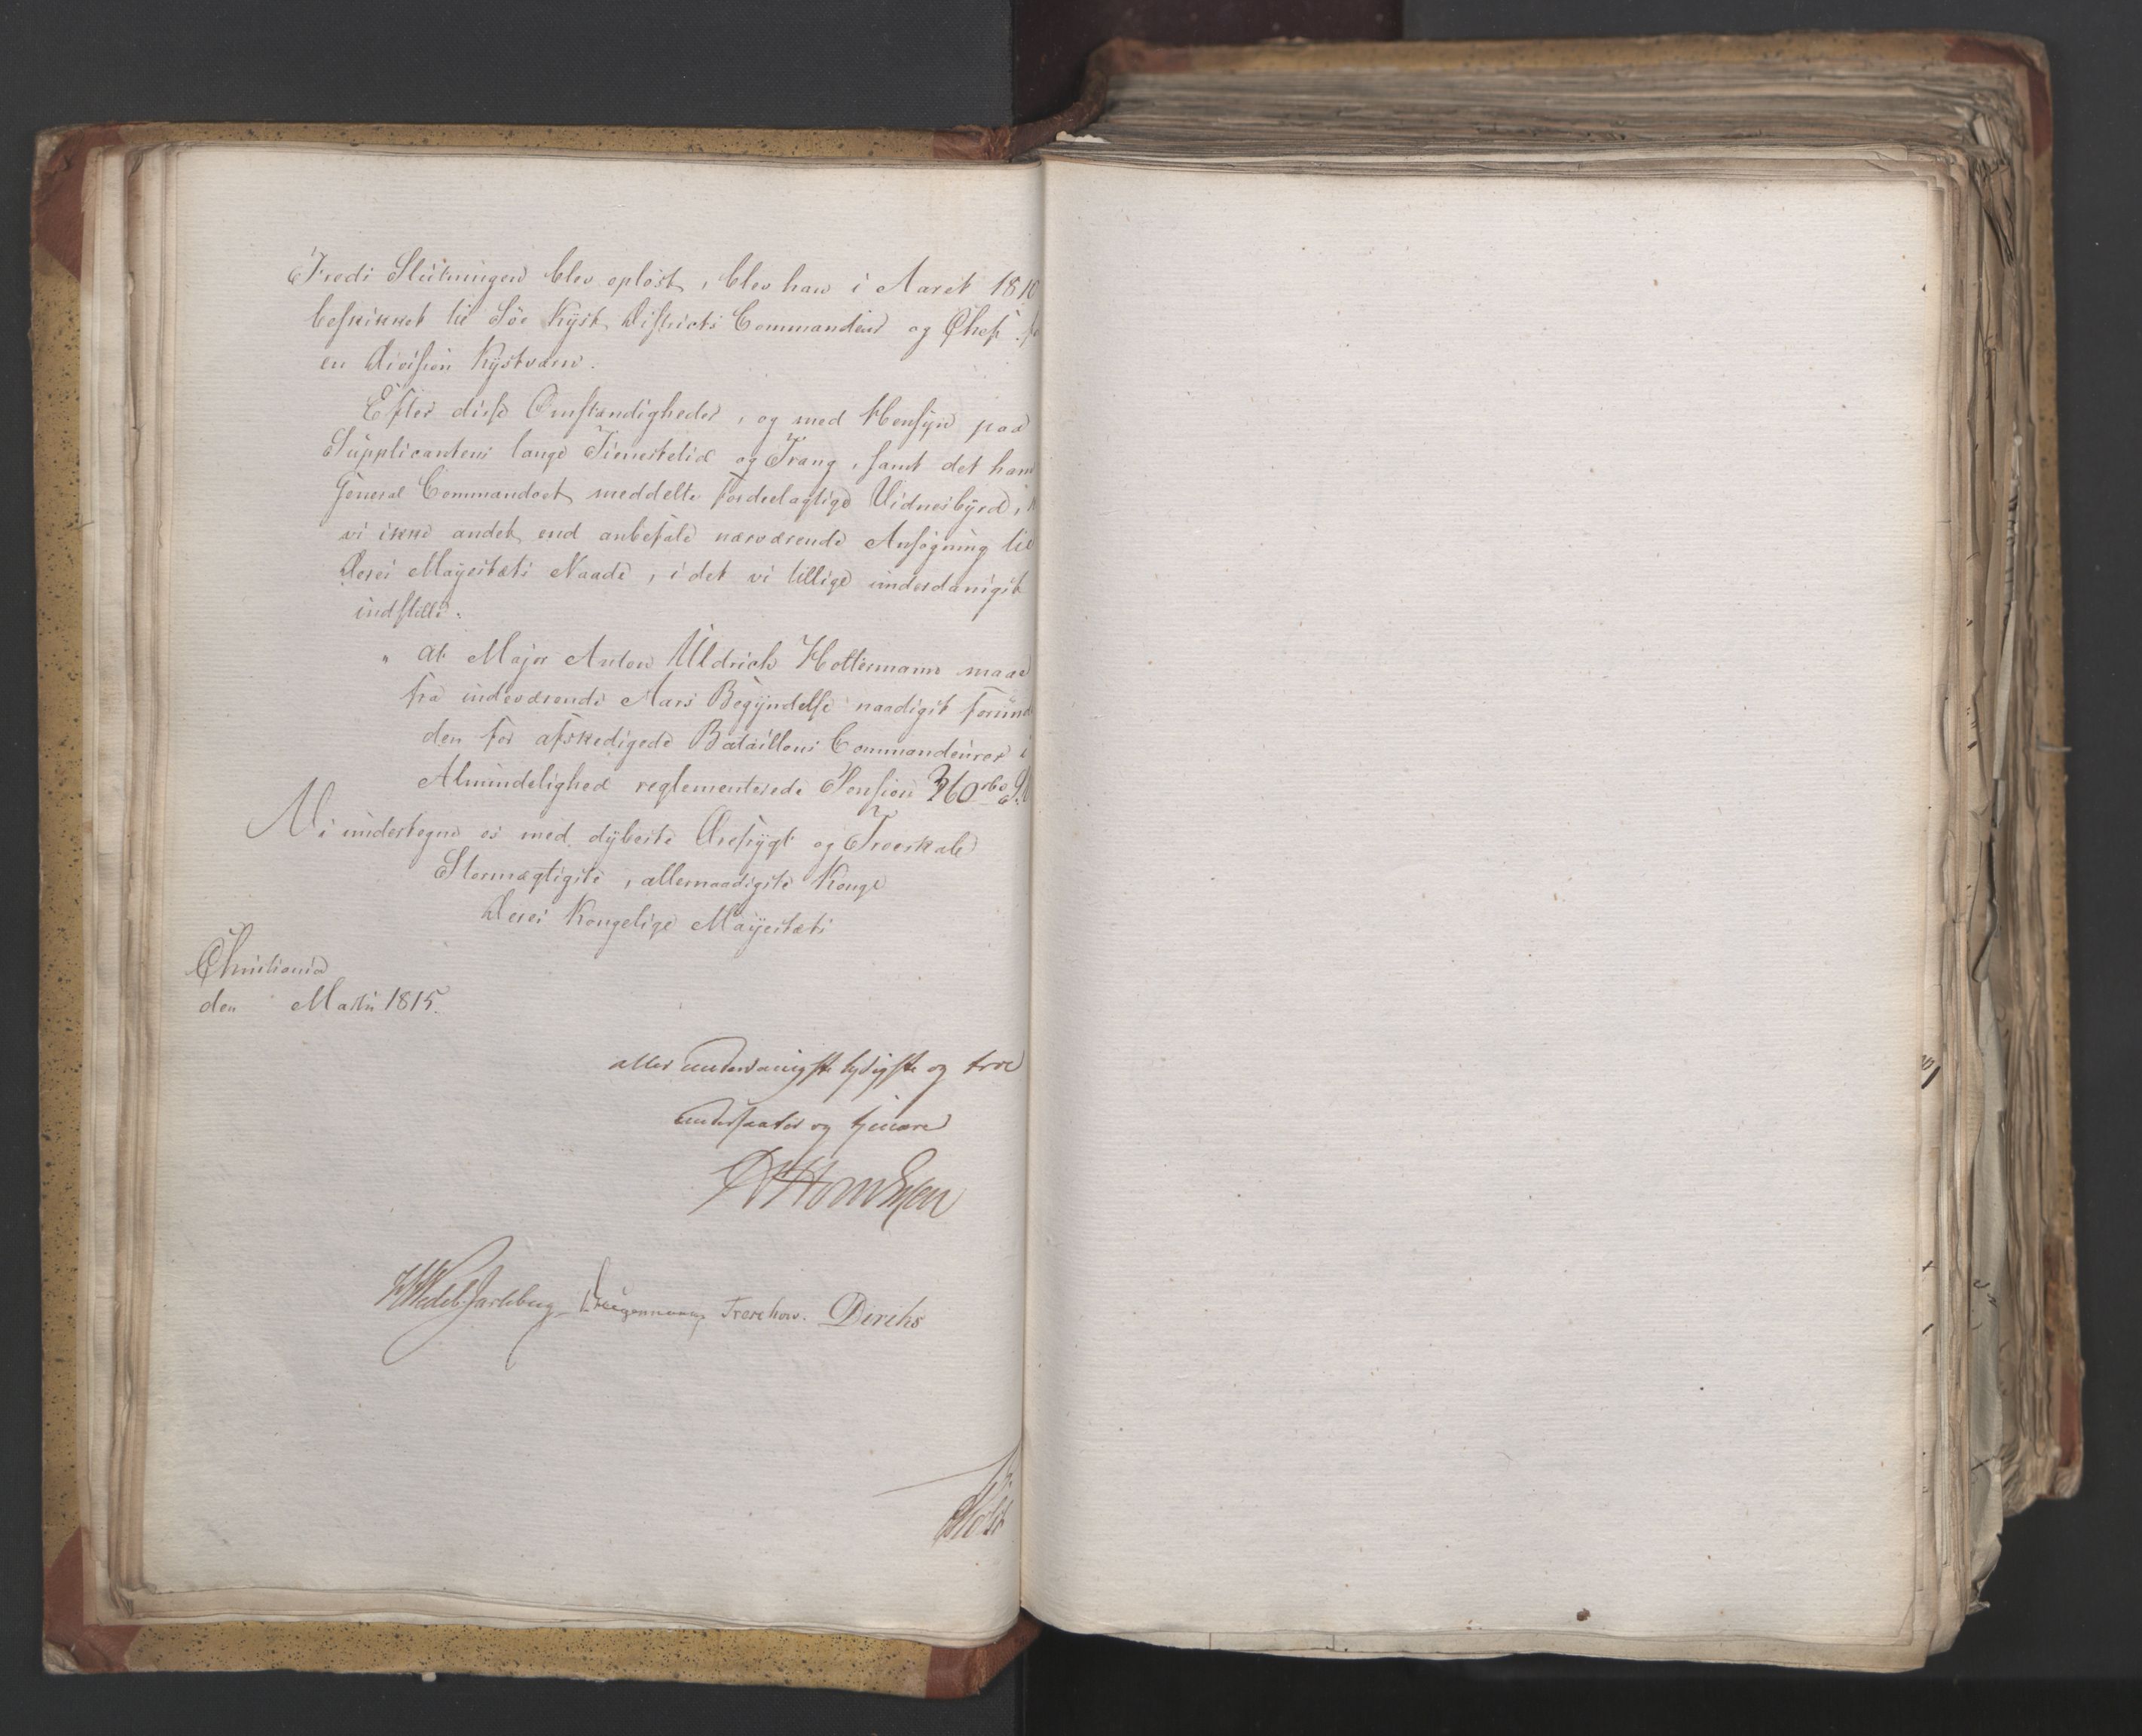 Fredi Slutningen blev opløst, blev han i Aaret 1810
beskikket til Søe Kyst Districts Commandeur og Chef fo
en Division Kystværn.
Efter disse Omstændigheder, og med Hensyn paa
Supplicantens lange Tienestetid og Trang, samt det ham
General Commandoet meddelte fordeelagtige Vidnesbyrd, k
vi ikke andet end anbefale nærværende Ansøgning til
Deres Mayestæts Naade, i det vi tillige underdanigst
indstille.
" at Major Anton Uldrich Hottermann maae
fra indeværende Aars Begyndelse naadigst forund
den for afskedigede Bataillons Commandeurer i
Almindelighed reglementerede Pension 360 rbd S.
Vi undertegne os med dybeste Ærefrygt og Troeskab
Stormægtigste, allernaadigste Konge
Deres Kongelige Mayestæts
Christiania
den Marts 1815.
aller underdanigste lydigste og troe
undersaatter og tjenere
HWedelJarlsberg Krigsmann Treschow. Diriks
Holst